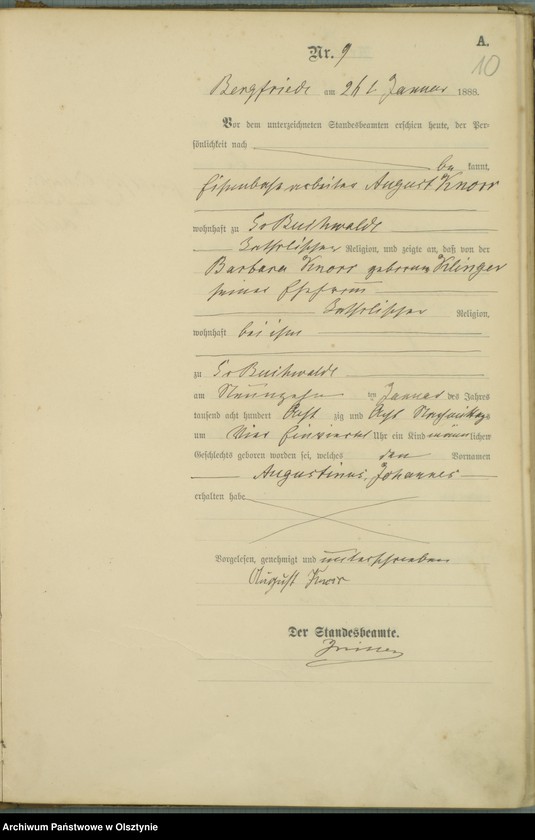 A.
10
Nr. 9
Bergfriede am 24 t Januar 1888.
Vor dem unterzeichneten Standesbeamten erschien heute, der Per-
sönlichkeit nach
be kannt,
Eisenbahnarbeiter August Knorr
wohnhaft zu Gr Buchwalde
katholischer Religion, und zeigte an, daß von der
Barbara Knorr geborenen Klinger
seiner Ehefrau
katholischer Religion,
wohnhaft bei ihm
zu Gr Buchwalde
am Neunzehn ten Januar des Jahres
tausend acht hundert Acht zig und Acht Nachmittags
um Vier Uhr ein Kind männlichen
Geschlechts geboren worden sei, welches den Vornamen
Augustinus, Johannes
erhalten habe
Vorgelesen, genehmigt und unterschrieben
August Knorr
Der Standesbeamte.
Archiwum Państwowe w Olsztynie